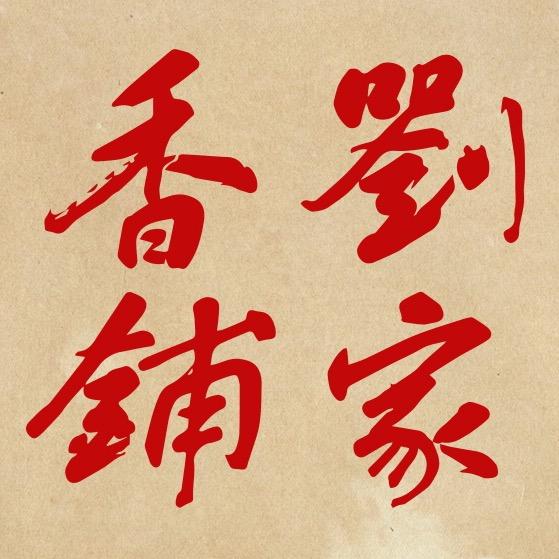 劉家
香鋪